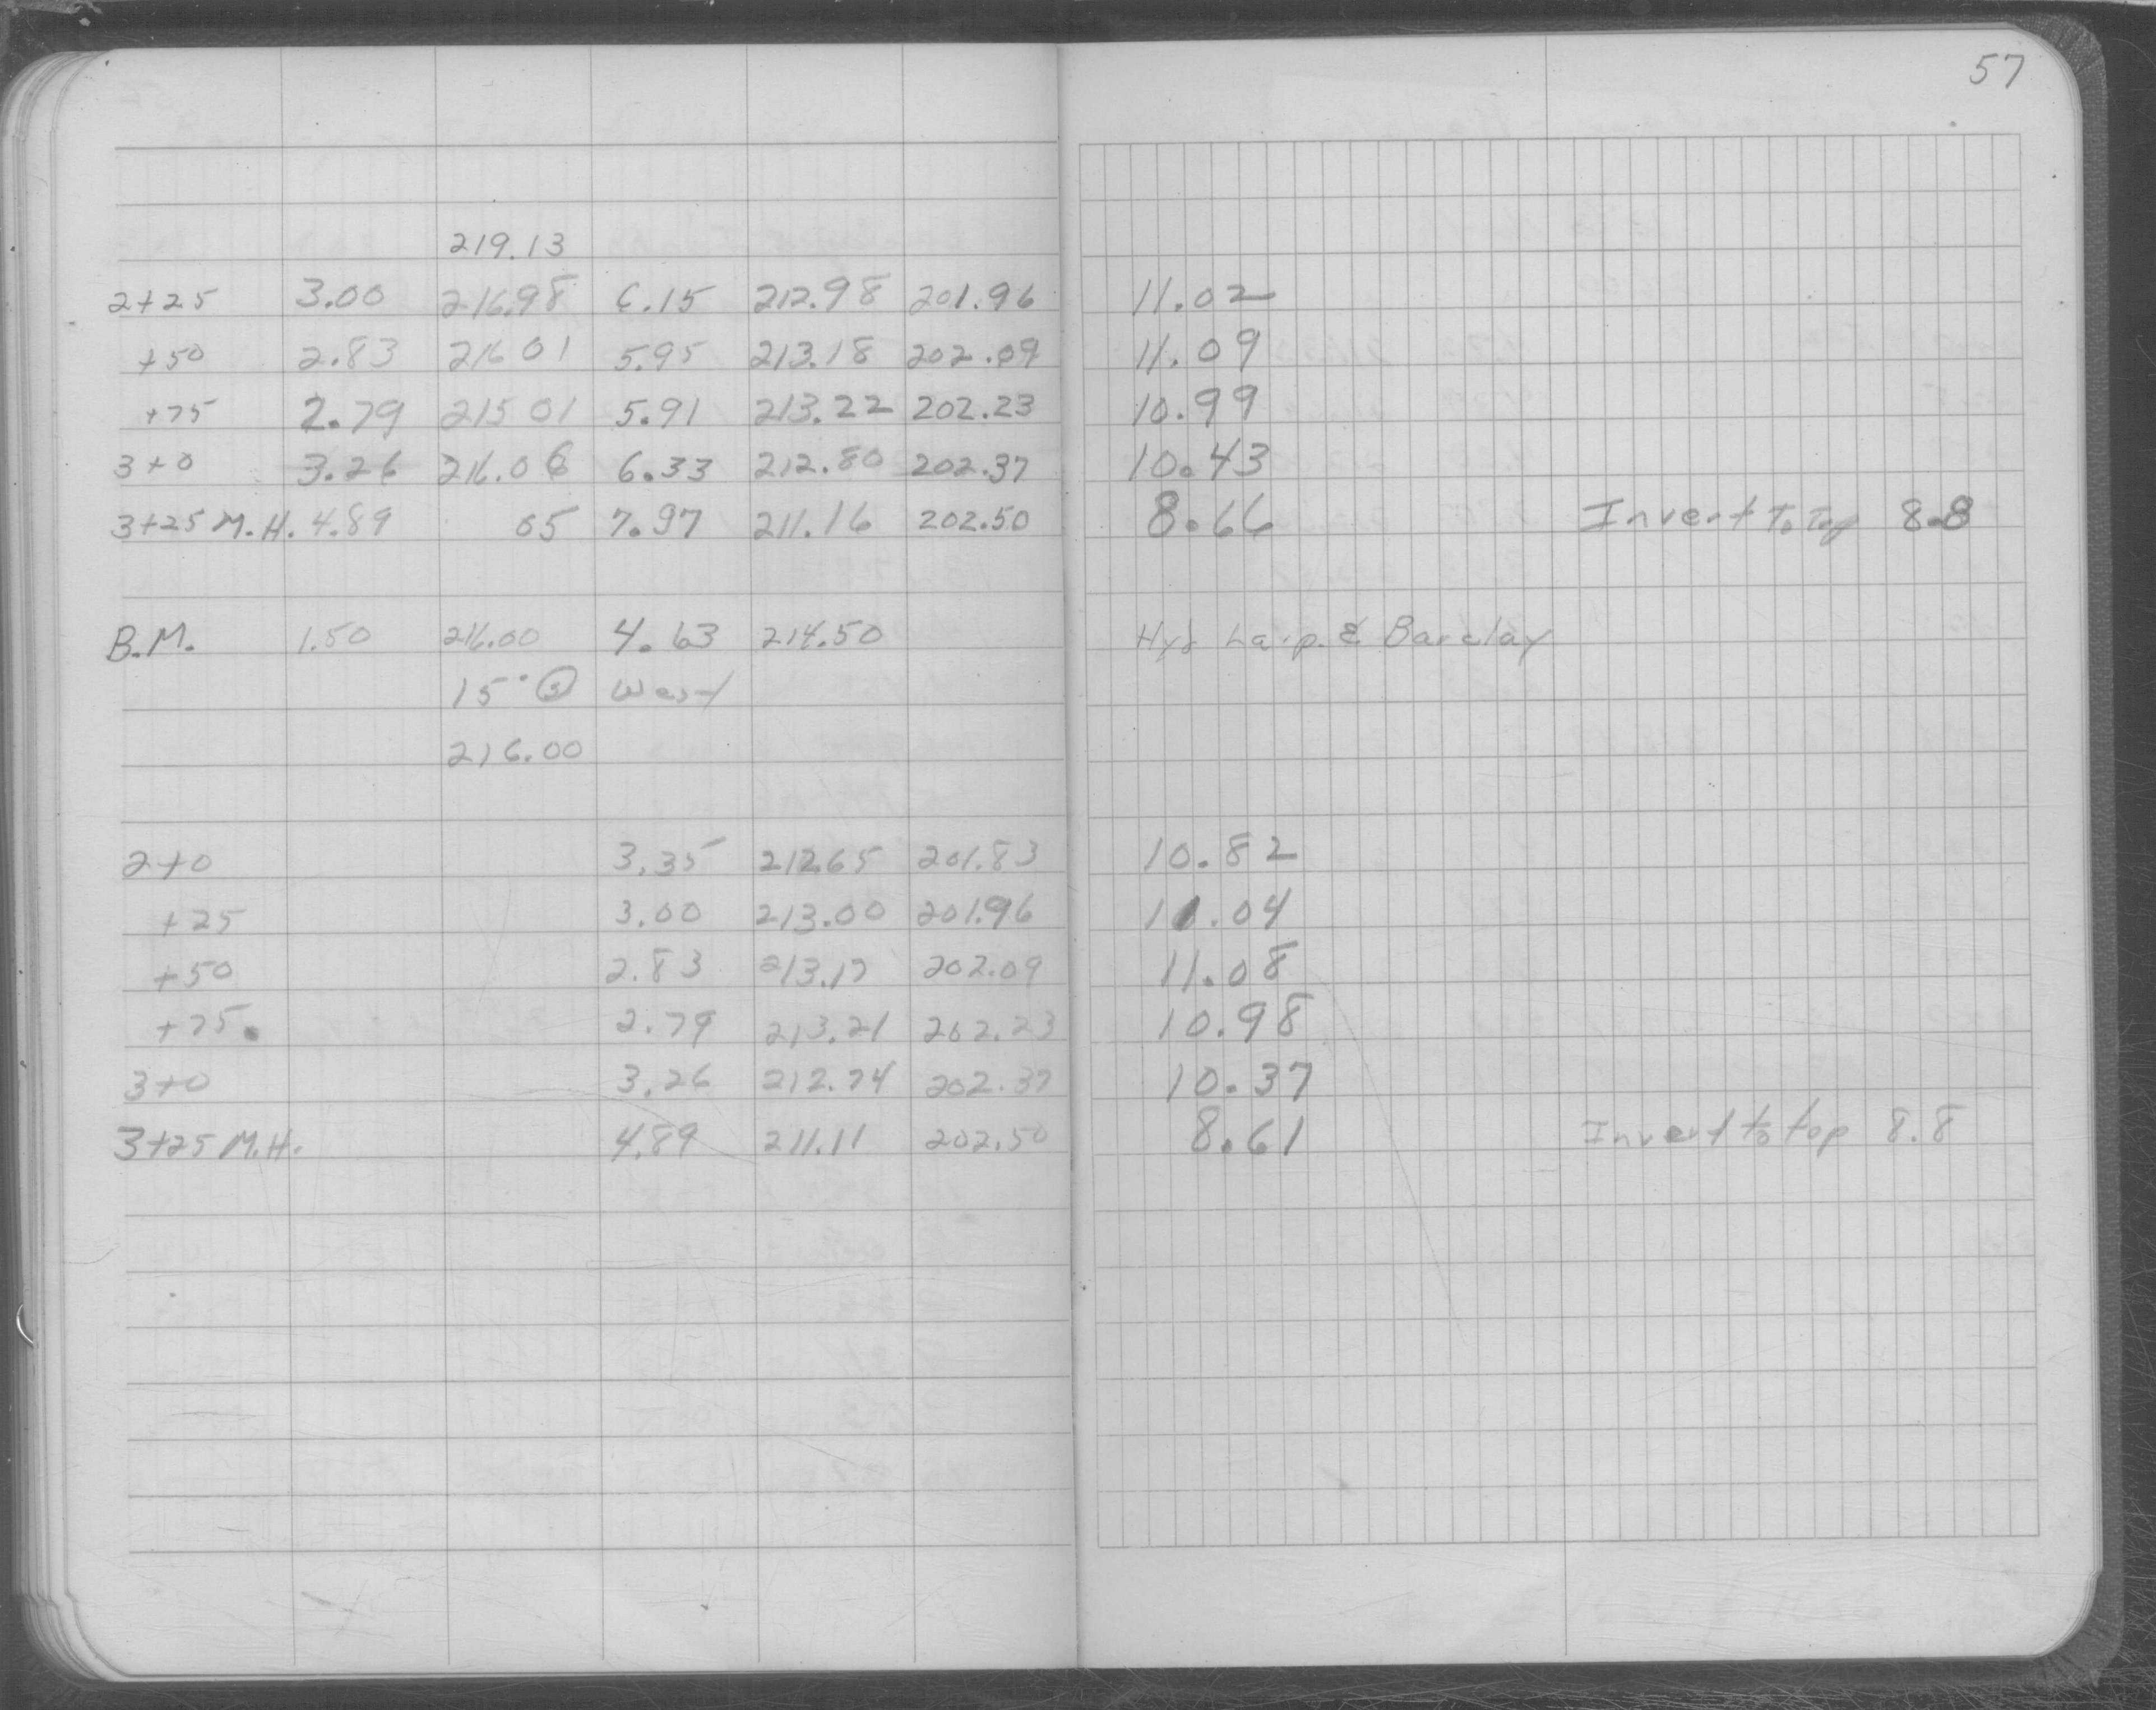 57
219.13
2+25 3.00 216.98 6.15 212.98 201.96 11.02
+50 2.83 216 01 5.95 213.18 202.09 11.09
+75 2.79 215 01 5.91 213.22 202.23 10.99
3+0 3.26 216.06 6.33 212.80 202.37 10.43
3+25 M.H. 4.89 05 7.97 211.16 202.50 8.66 Invert To Top 8.8
B.M. 1.50 216.00 4.63 214.50 Hyd & Barclay
15" West
216.00
2+0 3.35 212.65 201.83 10.82
+25 3.00 213.00 201.96 11.04
+50 2.83 213.17 202.09 11.08
+75 2.79 213.21 202.23 10.98
3+0 3.26 212.74 202.37 10.37
3+25 M.H. 4.89 211.11 202.50 8.61 Invert to top 8.8